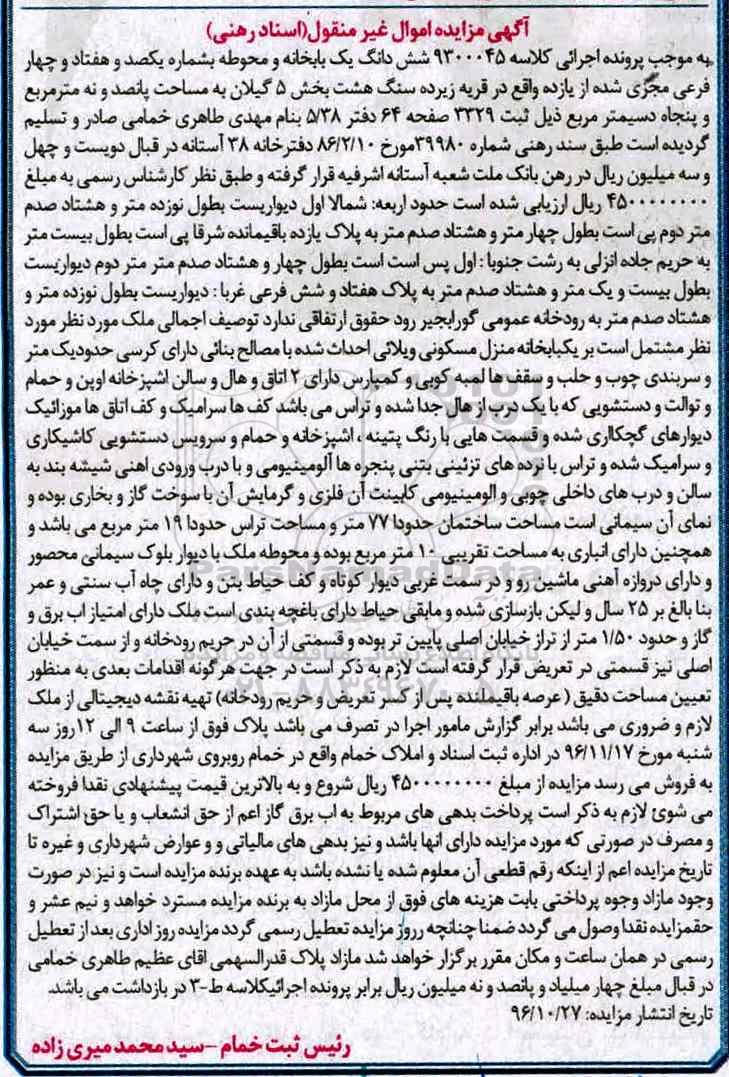 آگهی مزایده اموال غیر منقول(اسناد رهنی)
به موجب پرونده اجرائی کلاسه ۹۳۰۰۰۴۵ شش دانگ یک بابخانه و محوطه بشماره یکصد و هفتاد و چهار
فرعی مجزی شده از یازده واقع در قریه زیرده سنگ هشت بخش ۵ گیلان به مساحت پانصد و نه مترمربع
و پنجاه دسیمتر مربع ذیل ثبت ۳۳۲۹ صفحه ۶۴ دفتر ۵/۳۸ بنام مهدی طاهری خمامی صادر و تسلیم
گردیده است طبق سند رهنی شماره ۳۹۹۸۰مورخ ۸۶/۲/۱۰ دفترخانه ۳۸ آستانه در قبال دویست و چهل
و سه میلیون ریال در رهن بانک ملت شعبه آستانه اشرفیه قرار گرفته و طبق نظر کارشناس رسمی به مبلغ
۴۵۰۰۰۰۰۰۰۰ ریال ارزیابی شده است حدود اربعه: شمالا اول دیواریست بطول نوزده متر و هشتاد صدم
متر دوم پی است بطول چهار متر و هشتاد صدم متر به پلاک یازده باقیمانده شرقا پی است بطول بیست متر
به حریم جاده انزلی به رشت جنوبا : اول پس است است بطول چهار و هشتاد صدم متر متر دوم دیواریست
بطول بیست و یک متر و هشتاد صدم متر به پلاک هفتاد و شش فرعی غربا : دیواریست بطول نوزده متر و
هشتاد صدم متر به رودخانه عمومی گورابجیر رود حقوق ارتفاقی ندارد توصیف اجمالی ملک مورد نظر مورد
نظر مشتمل است بر یکبابخانه منزل مسکونی ویلائی احداث شده با مصالح بنائی دارای کرسی حدودیک متر
و سربندی چوب و حلب و سقف ها لمبه کوبی و کمپارس دارای ۲ اتاق و هال و سالن اشپزخانه اوپن و حمام
و توالت و دستشویی که با یک درب از هال جدا شده و تراس می باشد کف ها سرامیک و کف اتاق ها موزائیک
دیوارهای گچکاری شده و قسمت هایی با رنگ پتینه ، اشپزخانه و حمام و سرویس دستشویی کاشیکاری
و سرامیک شده و تراس با نرده های تزئینی بتنی پنجره ها آلومینیومی و با درب ورودی اهنی شیشه بند به
سالن و درب های داخلی چوبی و الومینیومی کابینت آن فلزی و گرمایش آن با سوخت گاز و بخاری بوده و
نمای آن سیمانی است مساحت ساختمان حدودا ۷۷ متر و مساحت تراس حدودا ۱۹ متر مربع می باشد و
همچنین دارای انباری به مساحت تقریبی ۱۰ متر مربع بوده و محوطه ملک با دیوار بلوک سیمانی محصور
و دارای دروازه آهنی ماشین رو و در سمت غربی دیوار کوتاه و کف حیاط بتن و دارای چاه آب سنتی و عمر
بنا بالغ بر ۲۵ سال و لیکن بازسازی شده و مابقی حیاط دارای باغچه بندی است ملک دارای امتیاز اب برق و
گاز و حدود ۱/۵۰ متر از تراز خیابان اصلی پایین تر بوده و قسمتی از آن در حریم رودخانه و از سمت خیابان
اصلی نیز قسمتی در تعریض قرار گرفته است لازم به ذکر است در جهت هرگونه اقدامات بعدی به منظور
تعیین مساحت دقیق ( عرصه باقیمانده پس از کسر تعریض و حریم رودخانه) تهیه نقشه دیجیتالی از ملک
لازم و ضروری می باشد برابر گزارش مامور اجرا در تصرف می باشد پلاک فوق از ساعت ۹ الی ۱۲ روز سه
شنبه مورخ ۹۶/۱۱/۱۷ در اداره ثبت اسناد و املاک خمام واقع در خمام روبروی شهرداری از طریق مزایده
به فروش می رسد مزایده از مبلغ ۴۵۰۰۰۰۰۰۰۰ ریال شروع و به بالاترین قیمت پیشنهادی نقدا فروخته
می شوئ لازم به ذکر است پرداخت بدهی های مربوط به اب برق گاز اعم از حق انشعاب و یا حق اشتراک
و مصرف در صورتی که مورد مزایده دارای انها باشد و نیز بدهی های مالیاتی و و عوارض شهرداری و غیره تا
تاریخ مزایده اعم از اینکه رقم قطعی آن معلوم شده یا نشده باشد به عهده برنده مزایده است و نیز در صورت
وجود مازاد وجوه پرداختی بابت هزینه های فوق از محل مازاد به برنده مزایده مسترد خواهد و نیم عشر و
حقمزایده نقدا وصول می گردد ضمنا چنانچه رروز مزایده تعطیل رسمی گردد مزایده روز اداری بعد از تعطیل
رسمی در همان ساعت و مکان مقرر برگزار خواهد شد مازاد پلاک قدرالسهمی اقای عظیم طاهری خمامی
در قبال مبلغ چهار میلیاد و پانصد و نه میلیون ریال برابر پرونده اجرائیکلاسه ط-۳ در بازداشت می باشد.
تاریخ انتشار مزایده: ۹۶/۱۰/۲۷
رئیس ثبت خمام -سید محمد میری زاده
ParsNamadData
۰۲۱-۸۸۳۴۹۶۷۰-۵